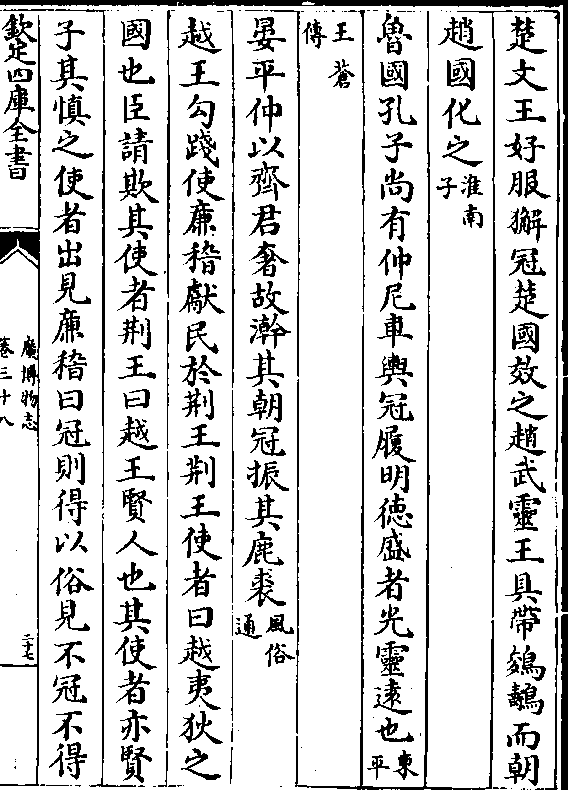 楚文王好服獬冠楚國效之趙武靈王具帶鵕鸃而朝
趙國化之淮南子
魯國孔子尚有仲尼車輿冠履明德盛者光靈遠也東平
王蒼傳
晏平仲以齊君奢故澣其朝冠振其鹿裘風俗通
越王勾踐使廉稽獻民於荆王荆王使者曰越夷狄之
國也臣請欺其使者荆王曰越王賢人也其使者亦賢
子其慎之使者出見廉稽曰冠則得以俗見不冠不得
欽定四庫全書
廣博物志
卷三十八
二十七